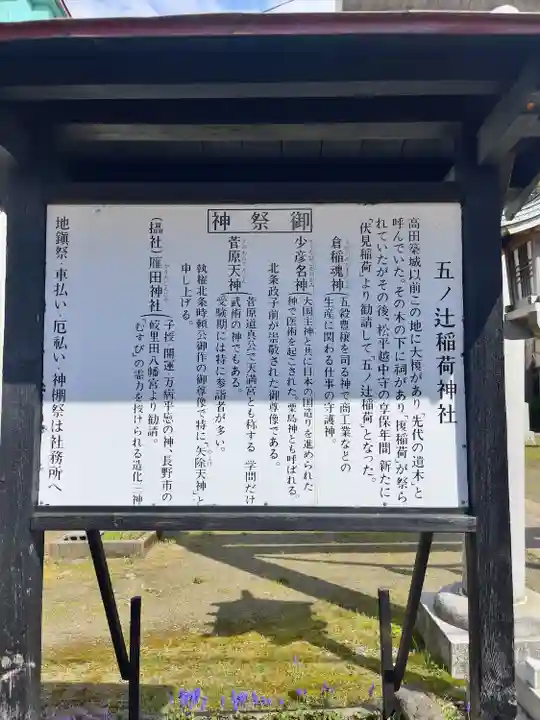 五ノ辻稲荷神社
高田築城以前この地に大榎があり「先代の遺木」と
呼んでいた。その木の下に祠があり、「榎稲荷」が祭ら
れていたがその後、松平越中守の享保年間 新たに
「伏見稲荷」より勧請して「五ノ辻稲荷」となった。
御祭神
倉稲魂神
五穀豊穣を司る神で商工業などの
生産に関わる仕事の守護神。
少彦名神
大国主神と共に日本の国造りを進められた
神で医術を起こされた。粟島神とも呼ばれる。
北条政子前が崇敬された御尊像である。
菅原天神
菅原道真公で天満宮とも称する 学問だけ
武術の神でもある。
受験期には特に参詣者が多い。
執権北条時頼公御作の御尊像で特に「矢除天神」と
申し上げる。
(摂社)雁田神社
子授・開運・万病平癒の神、長野市の
皎里田八幡宮より勧請。
「むすび」の霊力を授けられる造化三神
地鎮祭・車払い・厄払い・神棚祭は社務所へ